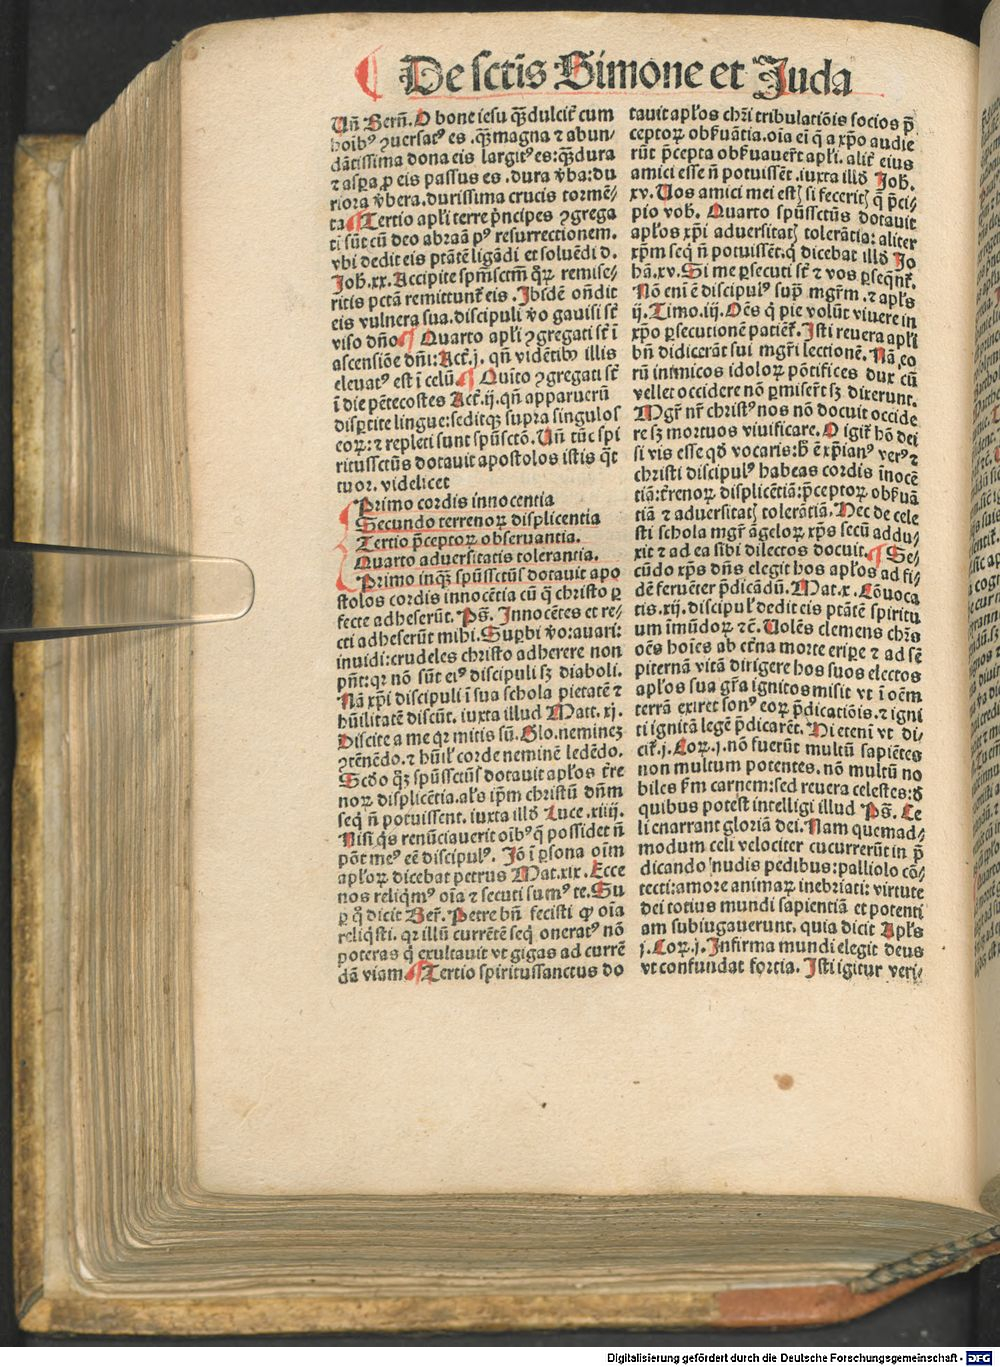 De sctis Simone et Juda
Uñ Berñ. O bone iesu qȝdulcit᷑ cum
hoibꝰ ꝯuersatꝰ es. qȝmagna ⁊ abun⸗
dātissima dona eis largitꝰ es: qȝdura
⁊ aspa ꝓ eis passus es. dura v̄ba: du
riora v̄bera. durissima crucis tormē⸗
ta. Tertio apl̄i terre pͥncipes ꝯgrega
ti sūt cū deo abraā pꝰ resurrectionem.
vbi dedit eis ptātē ligādi et soluēdi d.
Joh. xx. Accipite spm̄ sctm̄ qͦꝝ remise⸗
ritis pctā remittunt᷑ eis. Ibidē on̄dit
eis vulnera sua. discipuli v̄o gauisi st̄
viso dn̄o. Quarto apl̄i ꝯgregati st̄ ī
ascensiōe dn̄i: Act̄. j. qn̄ vidētibꝰ illis
eleuatꝰ est ī celū. Quīto ꝯgregati st̄
ī die pētecostes Act̄. ij. qn̄ apparuerū
disptite lingue: seditqȝ supra singulos
eoꝝ: ⁊ repleti sunt spūsctō. Uñ tūc spi
ritussctūs dotauit apostolos istis qͣt
tuor. videlicet
Primo cordis innocentia
Secundo terrenoꝝ displicentia
Tertio p̄ceptoꝝ obseruantia.
Quarto aduersitatis tolerantia.
Primo inqȝ spūssctūs dotauit apo
stolos cordis innocētia cū q̄ christo ꝑ
fecte adheserūt. Ps̄. Innocētes et re⸗
cti adheserūt mihi. Supbi v̄o: auari:
inuidi: crudeles christo adherere non
pñt: qꝛ nō sūt eiꝰ discipuli sȝ diaboli.
Nā xp̄i discipuli ī sua schola pietatē ⁊
hūilitatē discūt. iuxta illud Matt. xj.
Discite a me qꝛ mitis sū. Glo. neminez
ꝯtēnēdo. ⁊ hūil᷑ corde neminē ledēdo.
Scd̄o qͥȝ spūssctūs dotauit apl̄os t̄re
noꝝ displicētia. al̄s ip̄m christū dn̄m
seq̄ ñ potuissent. iuxta illd̄ Luce. xiiij.
Nisi qͥs renūciauerit oībꝰ q̄ possidet ñ
pōt meꝰ eē discipulꝰ. Jō ī ꝑsona oīm
apl̄oꝝ dicebat petrus Mat. xix. Ecce
nos reliqͥmꝰ oīa ⁊ secuti sumꝰ te. Su
ꝑ qͦ dicit Ber̄. Petre bñ fecisti qꝙ oīa
reliqͥsti. qꝛ illū currētē seq̄ oneratꝰ nō
poteras qͥ exultauit vt gigas ad currē
dā viam. Tertio spiritussanctus do
tauit apl̄os chr̄i tribulatiōis socios p̄
ceptoꝝ obẜuātia. oīa eī q̄ a xp̄o audie
rūt p̄cepta obẜuauer̄t apl̄i. alit᷑ eius
amici esse ñ potuissēt. iuxta illd̄ Joh.
xv. Uos amici mei estꝭ si feceritꝭ q̄ p̄ci⸗
pio vob. Quarto spūssctūs dotauit
apl̄os xp̄i aduersitatꝭ tolerātia: aliter
xp̄m seq̄ ñ potuissēt. qͥ dicebat illd̄ Jo
hā. xv. Si me ꝑsecuti st̄ ⁊ vos ꝑseqn̄t᷑.
Nō enī ē discipulꝰ supͣ mgr̄m. ⁊ apl̄s
ij. Timo. iij. Oēs qͥ pie volūt viuere in
xp̄o ꝑsecutionē patiēt᷑. Isti reuera apl̄i
bñ didicerāt sui mgr̄i lectionē. Nā, eo
rū inimicos idoloꝝ pōtifices dux cū
vellet occidere nō ꝑmiser̄t sȝ dixerunt.
Mgr̄ nr̄ christꝰ nos nō docuit occide
re sȝ mortuos viuificare. O igit᷑ hō dei
si vis esse qd̄ vocaris: h̄ ē xp̄ianꝰ verꝰ ⁊
christi discipulꝰ habeas cordis īnocē
tiā: t̄renoꝝ displicētiā: p̄ceptoꝝ obẜuā
tiā ⁊ aduersitatꝭ tolerātiā. Hec de cele
sti schola mgr̄ āgeloꝝ xp̄s secū addu⸗
xit ⁊ ad ea sibi dilectos docuit. Se⸗
cūdo xp̄s dn̄s elegit hos apl̄os ad fi⸗
dē feruēter p̄dicādū. Mat. x. Cōuoca
tis. xij. discipulꝭ dedit eis ptātē spiritu
um īmūdoꝝ ⁊c̄. Uolēs clemens chr̄s
oēs hoīes ab et̄na morte eripe ⁊ ad sē
piternā vitā dirigere hos suos electos
apl̄os sua gr̄a ignitos misit vt ī oēm
terrā exiret sonꝰ eoꝝ p̄dicatiōis. ⁊ igni
ti ignitā legē p̄dicarēt. Hi etenī vt di⸗
cit᷑. j. Coꝝ. j. nō fuerūt multū sapiētes
non multum potentes. nō multū no
biles ẜm carnem: sed reuera celestes: d̄
quibus potest intelligi illud Ps̄. Ce
li enarrant gloriā dei. Nam quemad⸗
modum celi velociter cucurrerūt in p̄
dicando nudis pedibus: palliolo cō⸗
tecti: amore animaꝝ inebriati: virtute
dei totius mundi sapientiā et potenti
am subiugauerunt. quia dicit Apl̄s
j. Coꝝ. j. Infirma mundi elegit deus
vt confundat fortia. Isti igitur veri⸗
Digitalisierung gefördert durch die Deutsche Forschungsgemeinschaft - DFG